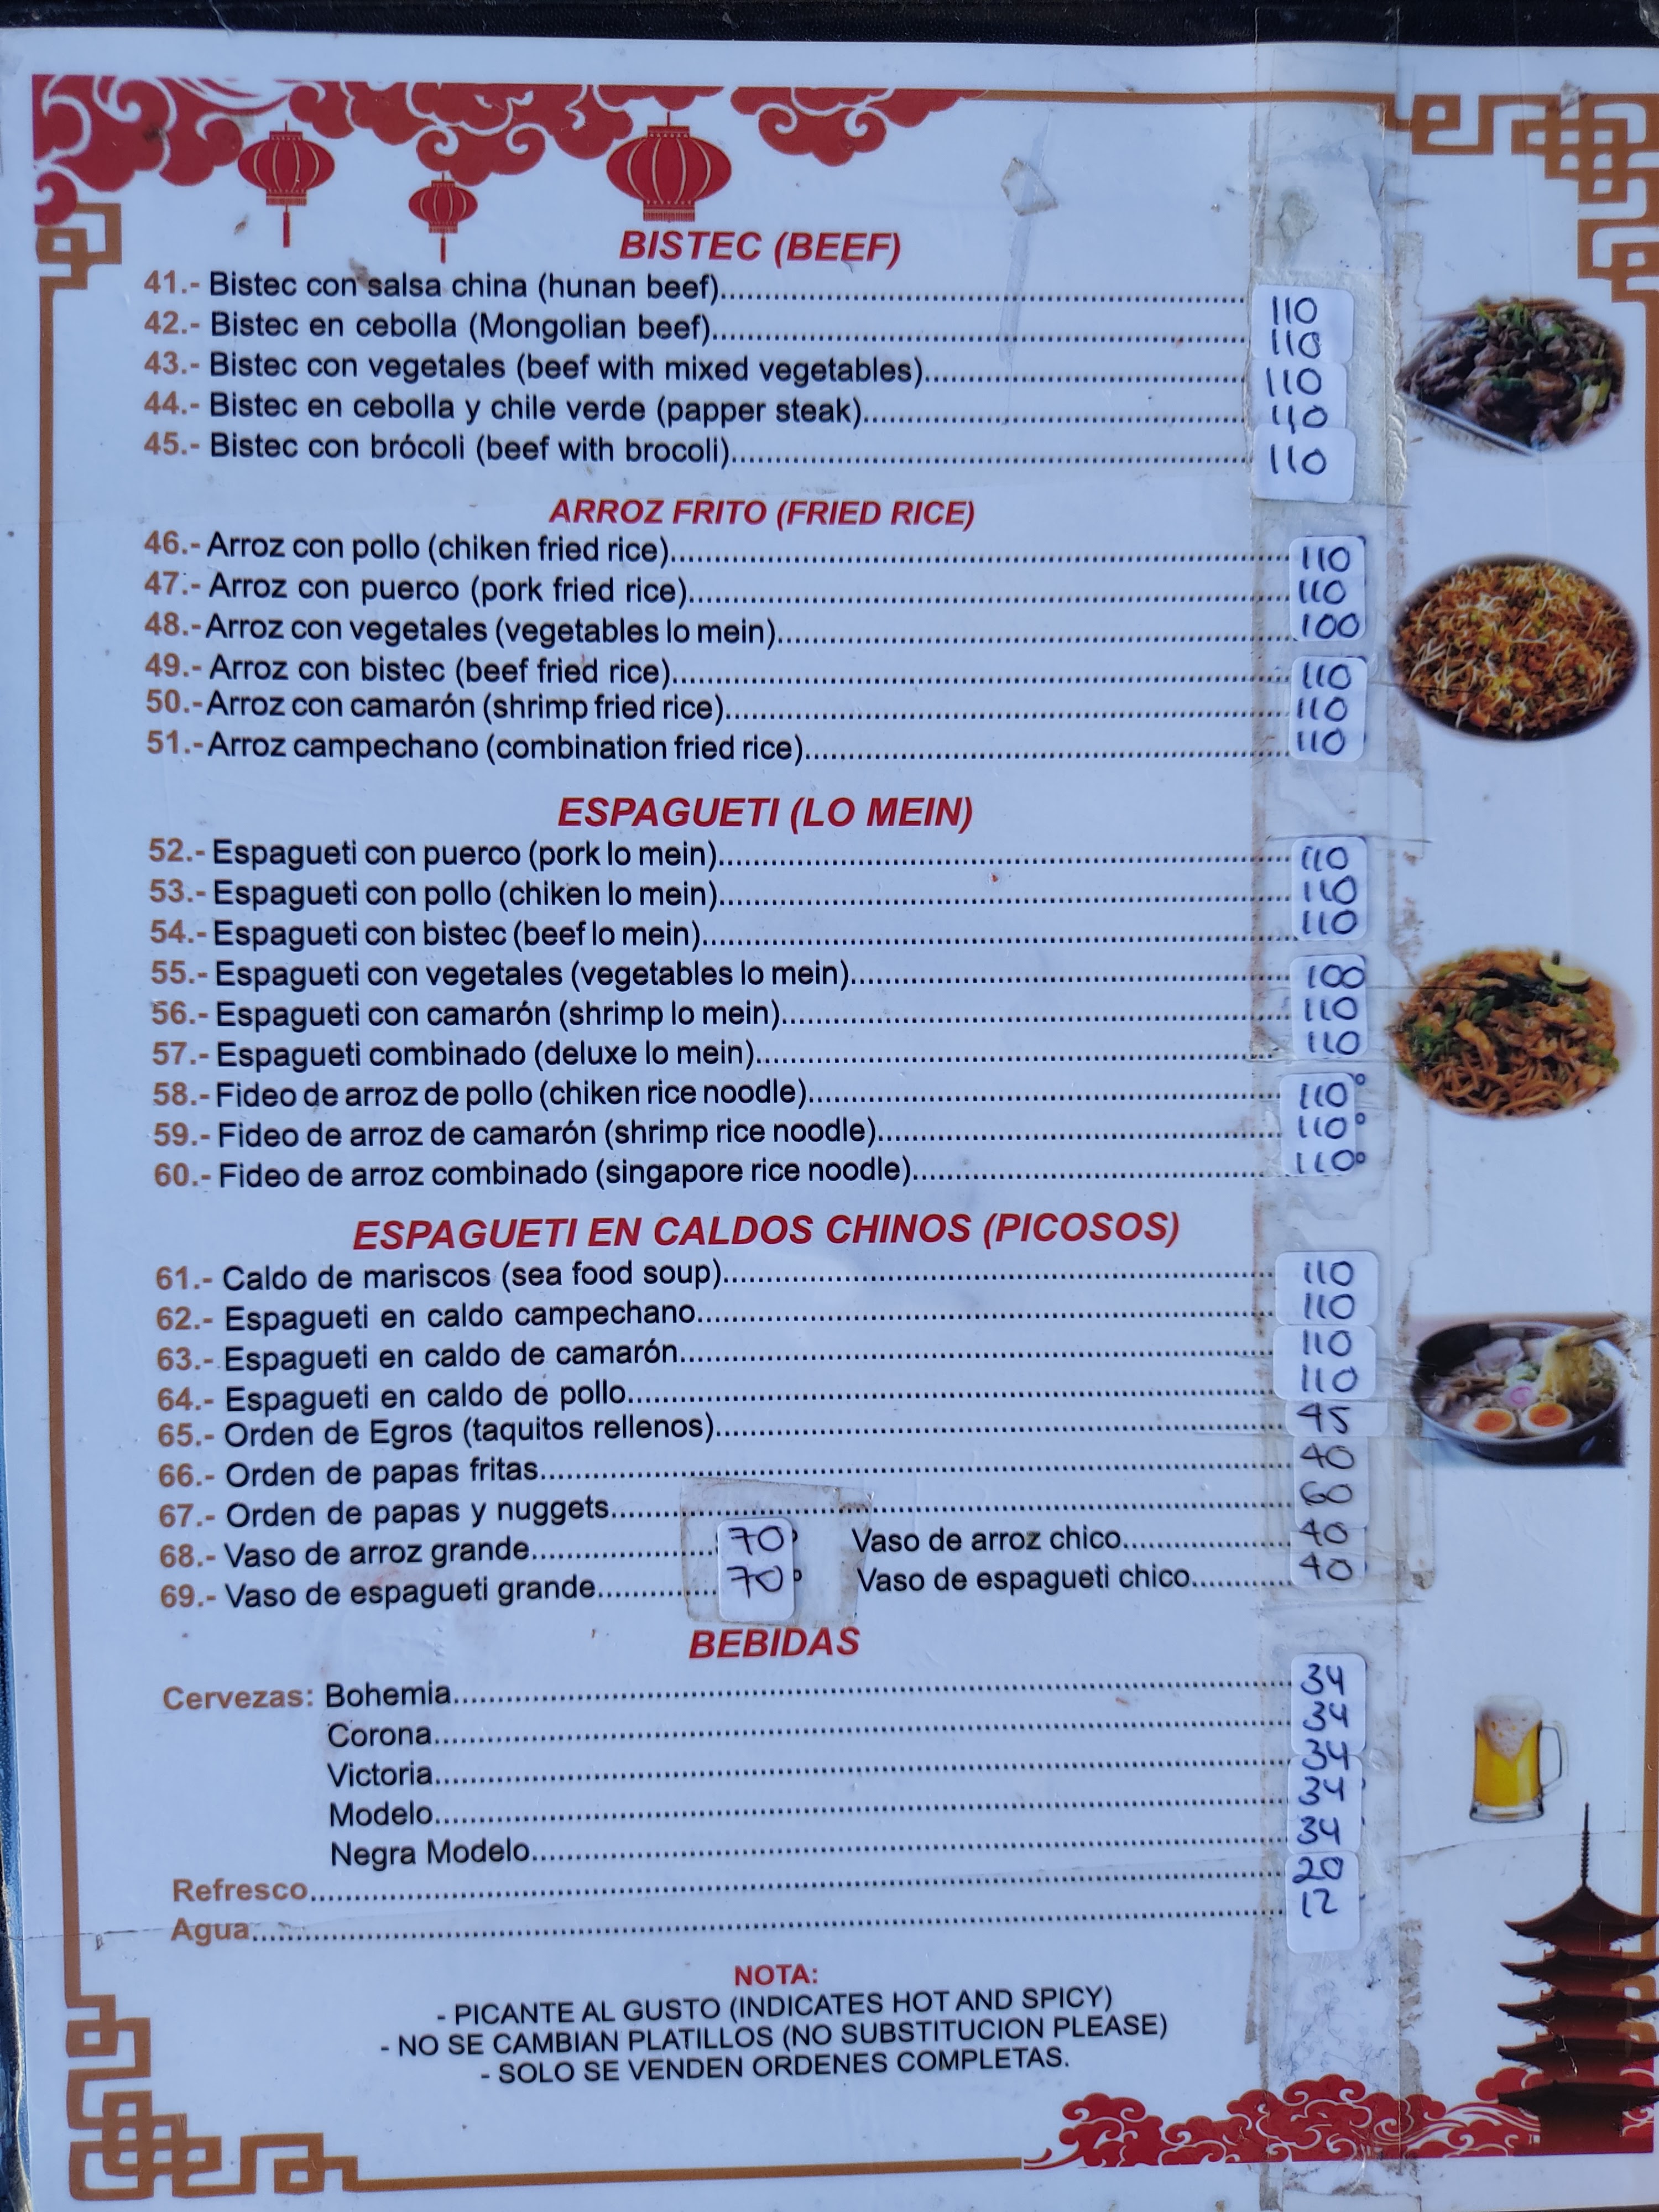 BISTEC (BEEF)
41.- Bistec con salsa china (hunan beef)........ 110
42.- Bistec en cebolla (Mongolian beef)........ 110
43.- Bistec con vegetales (beef with mixed vegetables)........ 110
44.- Bistec en cebolla y chile verde (papper steak)........ 110
45.- Bistec con brócoli (beef with brocoli)........ 110
ARROZ FRITO (FRIED RICE)
46.- Arroz con pollo (chiken fried rice)........ 110
47.- Arroz con puerco (pork fried rice)........ 110
48.- Arroz con vegetales (vegetables lo mein)........ 100
49.- Arroz con bistec (beef fried rice)........ 110
50.- Arroz con camarón (shrimp fried rice)........ 110
51.- Arroz campechano (combination fried rice)........ 110
ESPAGUETI (LO MEIN)
52.- Espagueti con puerco (pork lo mein)........ 110
53.- Espagueti con pollo (chiken lo mein)........ 110
54.- Espagueti con bistec (beef lo mein)........ 110
55.- Espagueti con vegetales (vegetables lo mein)........ 100
56.- Espagueti con camarón (shrimp lo mein)........ 110
57.- Espagueti combinado (deluxe lo mein)........ 110
58.- Fideo de arroz de pollo (chiken rice noodle)........ 110°
59.- Fideo de arroz de camarón (shrimp rice noodle)........ 110°
60.- Fideo de arroz combinado (singapore rice noodle)........ 110°
ESPAGUETI EN CALDOS CHINOS (PICOSOS)
61.- Caldo de mariscos (sea food soup)........ 110
62.- Espagueti en caldo campechano........ 110
63.- Espagueti en caldo de camarón........ 110
64.- Espagueti en caldo de pollo........ 110
65.- Orden de Egros (taquitos rellenos)........ 45
66.- Orden de papas fritas........ 40
67.- Orden de papas y nuggets........ 60
68.- Vaso de arroz grande........ 70° Vaso de arroz chico........ 40
69.- Vaso de espagueti grande........ 70° Vaso de espagueti chico........ 40
BEBIDAS
Cervezas: Bohemia........ 34
Corona........ 34
Victoria........ 34
Modelo........ 34
Negra Modelo........ 34
Refresco........ 20
Agua........ 12
NOTA:
- PICANTE AL GUSTO (INDICATES HOT AND SPICY)
- NO SE CAMBIAN PLATILLOS (NO SUBSTITUCION PLEASE)
- SOLO SE VENDEN ORDENES COMPLETAS.